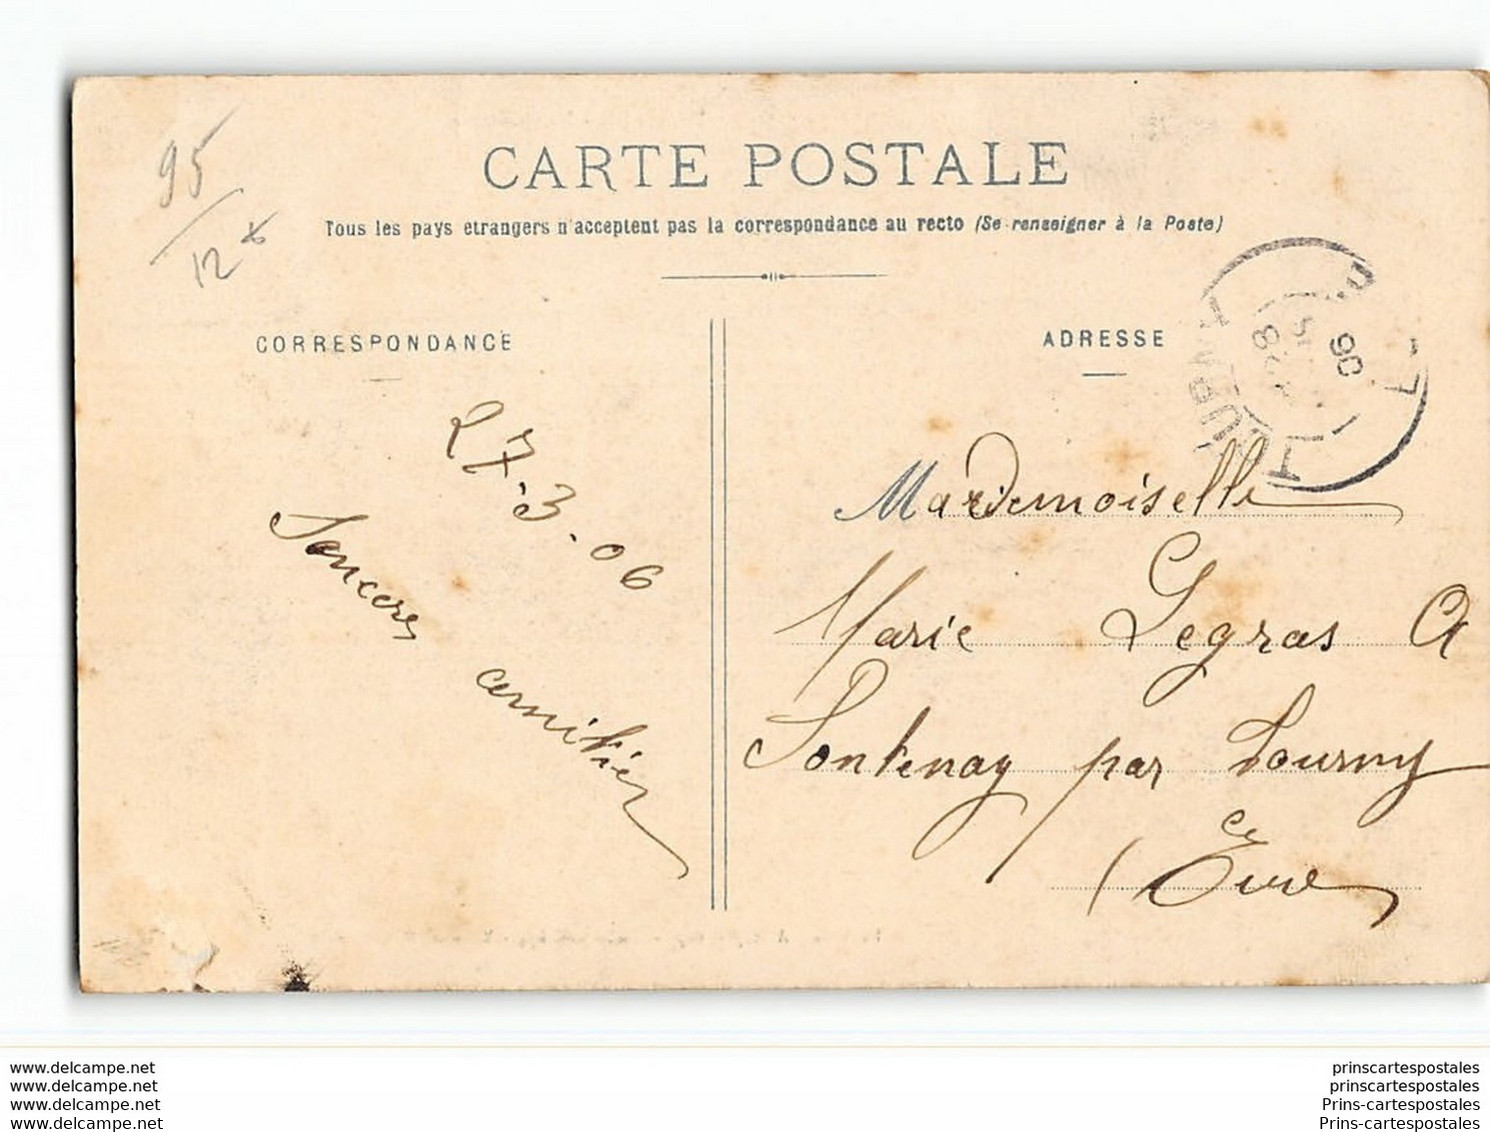 95
12 x
CARTE POSTALE
Tous les pays etrangers n'acceptent pas la correspondance au recto (Se renseigner à la Poste)
CORRESPONDANCE
27.3.06
Sincères
amitiés
ADRESSE
28
06
Mademoiselle
Marie Legras A
Fontenay par Tourny
(Eure
www.delcampe.net
www.delcampe.net
www.delcampe.net
www.delcampe.net
prinscartespostales
prinscartespostales
Prins-cartespostales
Prins-cartespostales